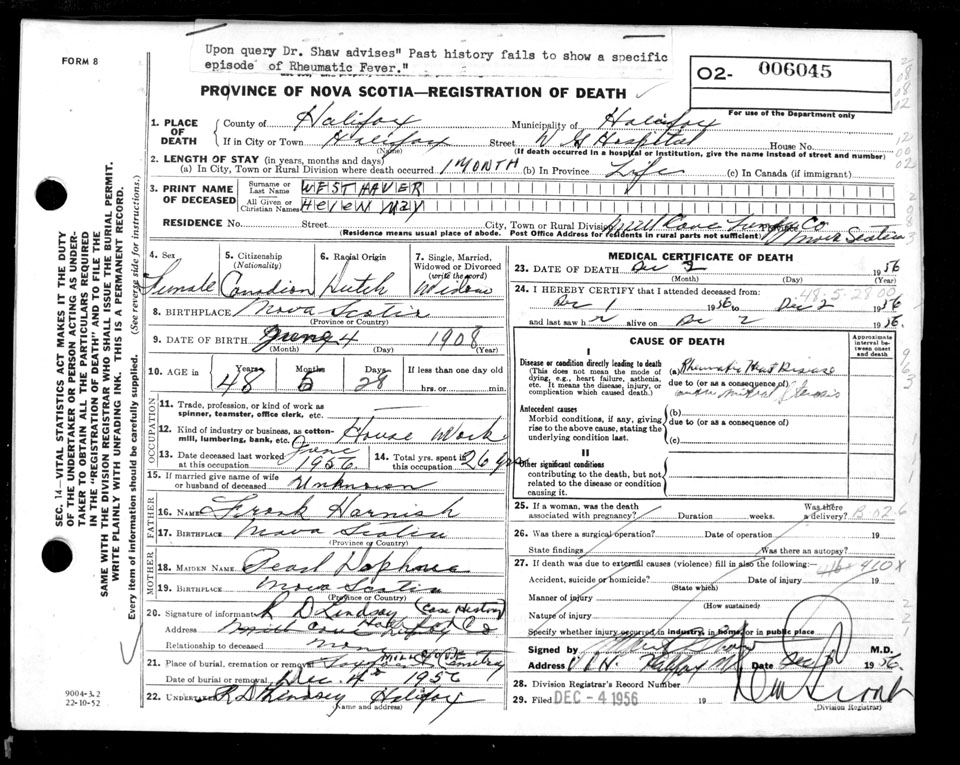 Upon query Dr. Shaw advises" Past history fails to show a specific
episode of Rheumatic Fever."
FORM 8
O2- 006045
For use of the Department only
PROVINCE OF NOVA SCOTIA—REGISTRATION OF DEATH
1. PLACE OF DEATH
County of Halifax Municipality of Halifax
If in City or Town Halifax (Name) Street V G Hospital House No.
(If death occurred in a hospital or institution, give the name instead of street and number)
2. LENGTH OF STAY (in years, months and days)
(a) In City, Town or Rural Division where death occurred 1 MONTH (b) In Province Life (c) In Canada (if immigrant)
3. PRINT NAME OF DECEASED
Surname or Last Name WESTHAVER
All Given or Christian Names HELEN MAY
RESIDENCE No. Street City, Town or Rural Division Mill Cove Lunfg Co Province Nova Scotia
(Residence means usual place of abode. Post Office Address for residents in rural parts not sufficient)
4. Sex Female
5. Citizenship (Nationality) Canadian
6. Racial Origin Dutch
7. Single, Married, Widowed or Divorced (write the word) Widow
8. BIRTHPLACE Nova Scotia
(Province or Country)
9. DATE OF BIRTH June 4 1908
(Month) (Day) (Year)
10. AGE in Years Months Days If less than one day old
48 5 28 hrs. or min.
OCCUPATION
11. Trade, profession, or kind of work as spinner, teamster, office clerk, etc.
12. Kind of industry or business, as cotton-mill, lumbering, bank, etc. House Work
13. Date deceased last worked at this occupation June 1956
14. Total yrs. spent in this occupation 26 yrs
15. If married give name of wife or husband of deceased Unknown
FATHER
16. NAME Frank Harnish
17. BIRTHPLACE Nova Scotia
(Province or Country)
MOTHER
18. MAIDEN NAME Pearl
19. BIRTHPLACE Nova Scotia
(Province or Country)
20. Signature of informant R D Lindsay (Case History)
Address
Relationship to deceased none
21. Place of burial, cremation or removal MILL COVE Cemetery
Date of burial or removal Dec. 4th 1956
22. UNDERTAKER Halifax
(Name and Address)
MEDICAL CERTIFICATE OF DEATH
23. DATE OF DEATH Dec 2 1956
(Month) (Day)
24. I HEREBY CERTIFY that I attended deceased from:
Dec 1 1956 to Dec 2 1956
and last saw h r alive on Dec 2 1956.
CAUSE OF DEATH
Approximate interval between onset and death
I
Disease or condition directly leading to death
(This does not mean the mode of dying, e.g., heart failure, asthenia, etc. It means the disease, injury, or complication which caused death.)
(a) Rheumatic Heart Disease
due to (or as a consequence of)
mitral Stenosis
Antecedent causes
Morbid conditions, if any, giving rise to the above cause, stating the underlying condition last.
(b)
due to (or as a consequence of)
(c)
II
Other significant conditions
contributing to the death, but not related to the disease or condition causing it.
25. If a woman, was the death associated with pregnancy? Duration weeks. Was there a delivery?
26. Was there a surgical operation? Date of operation 19
State findings Was there an autopsy?
27. If death was due to external causes (violence) fill in also the following:
Accident, suicide or homicide? Date of injury 19
(State which)
Manner of injury
(How sustained)
Nature of injury
Specify whether injury occurred in industry, in home, or in public place
Signed by M.D.
Address V.G.H. Halifax Date Dec 1956.
28. Division Registrar's Record Number
29. Filed DEC - 4 1956 19
(Division Registrar)
SEC. 14—VITAL STATISTICS ACT MAKES IT THE DUTY
OF THE UNDERTAKER OR PERSON ACTING AS UNDER-
TAKER TO OBTAIN ALL THE PARTICULARS REQUIRED
IN THE "REGISTRATION OF DEATH" AND TO FILE THE
SAME WITH THE DIVISION REGISTRAR WHO SHALL ISSUE THE BURIAL PERMIT.
WRITE PLAINLY WITH UNFADING INK. THIS IS A PERMANENT RECORD.
Every item of information should be carefully supplied. (See reverse side for instructions.)
9004-3.2
22-10-52